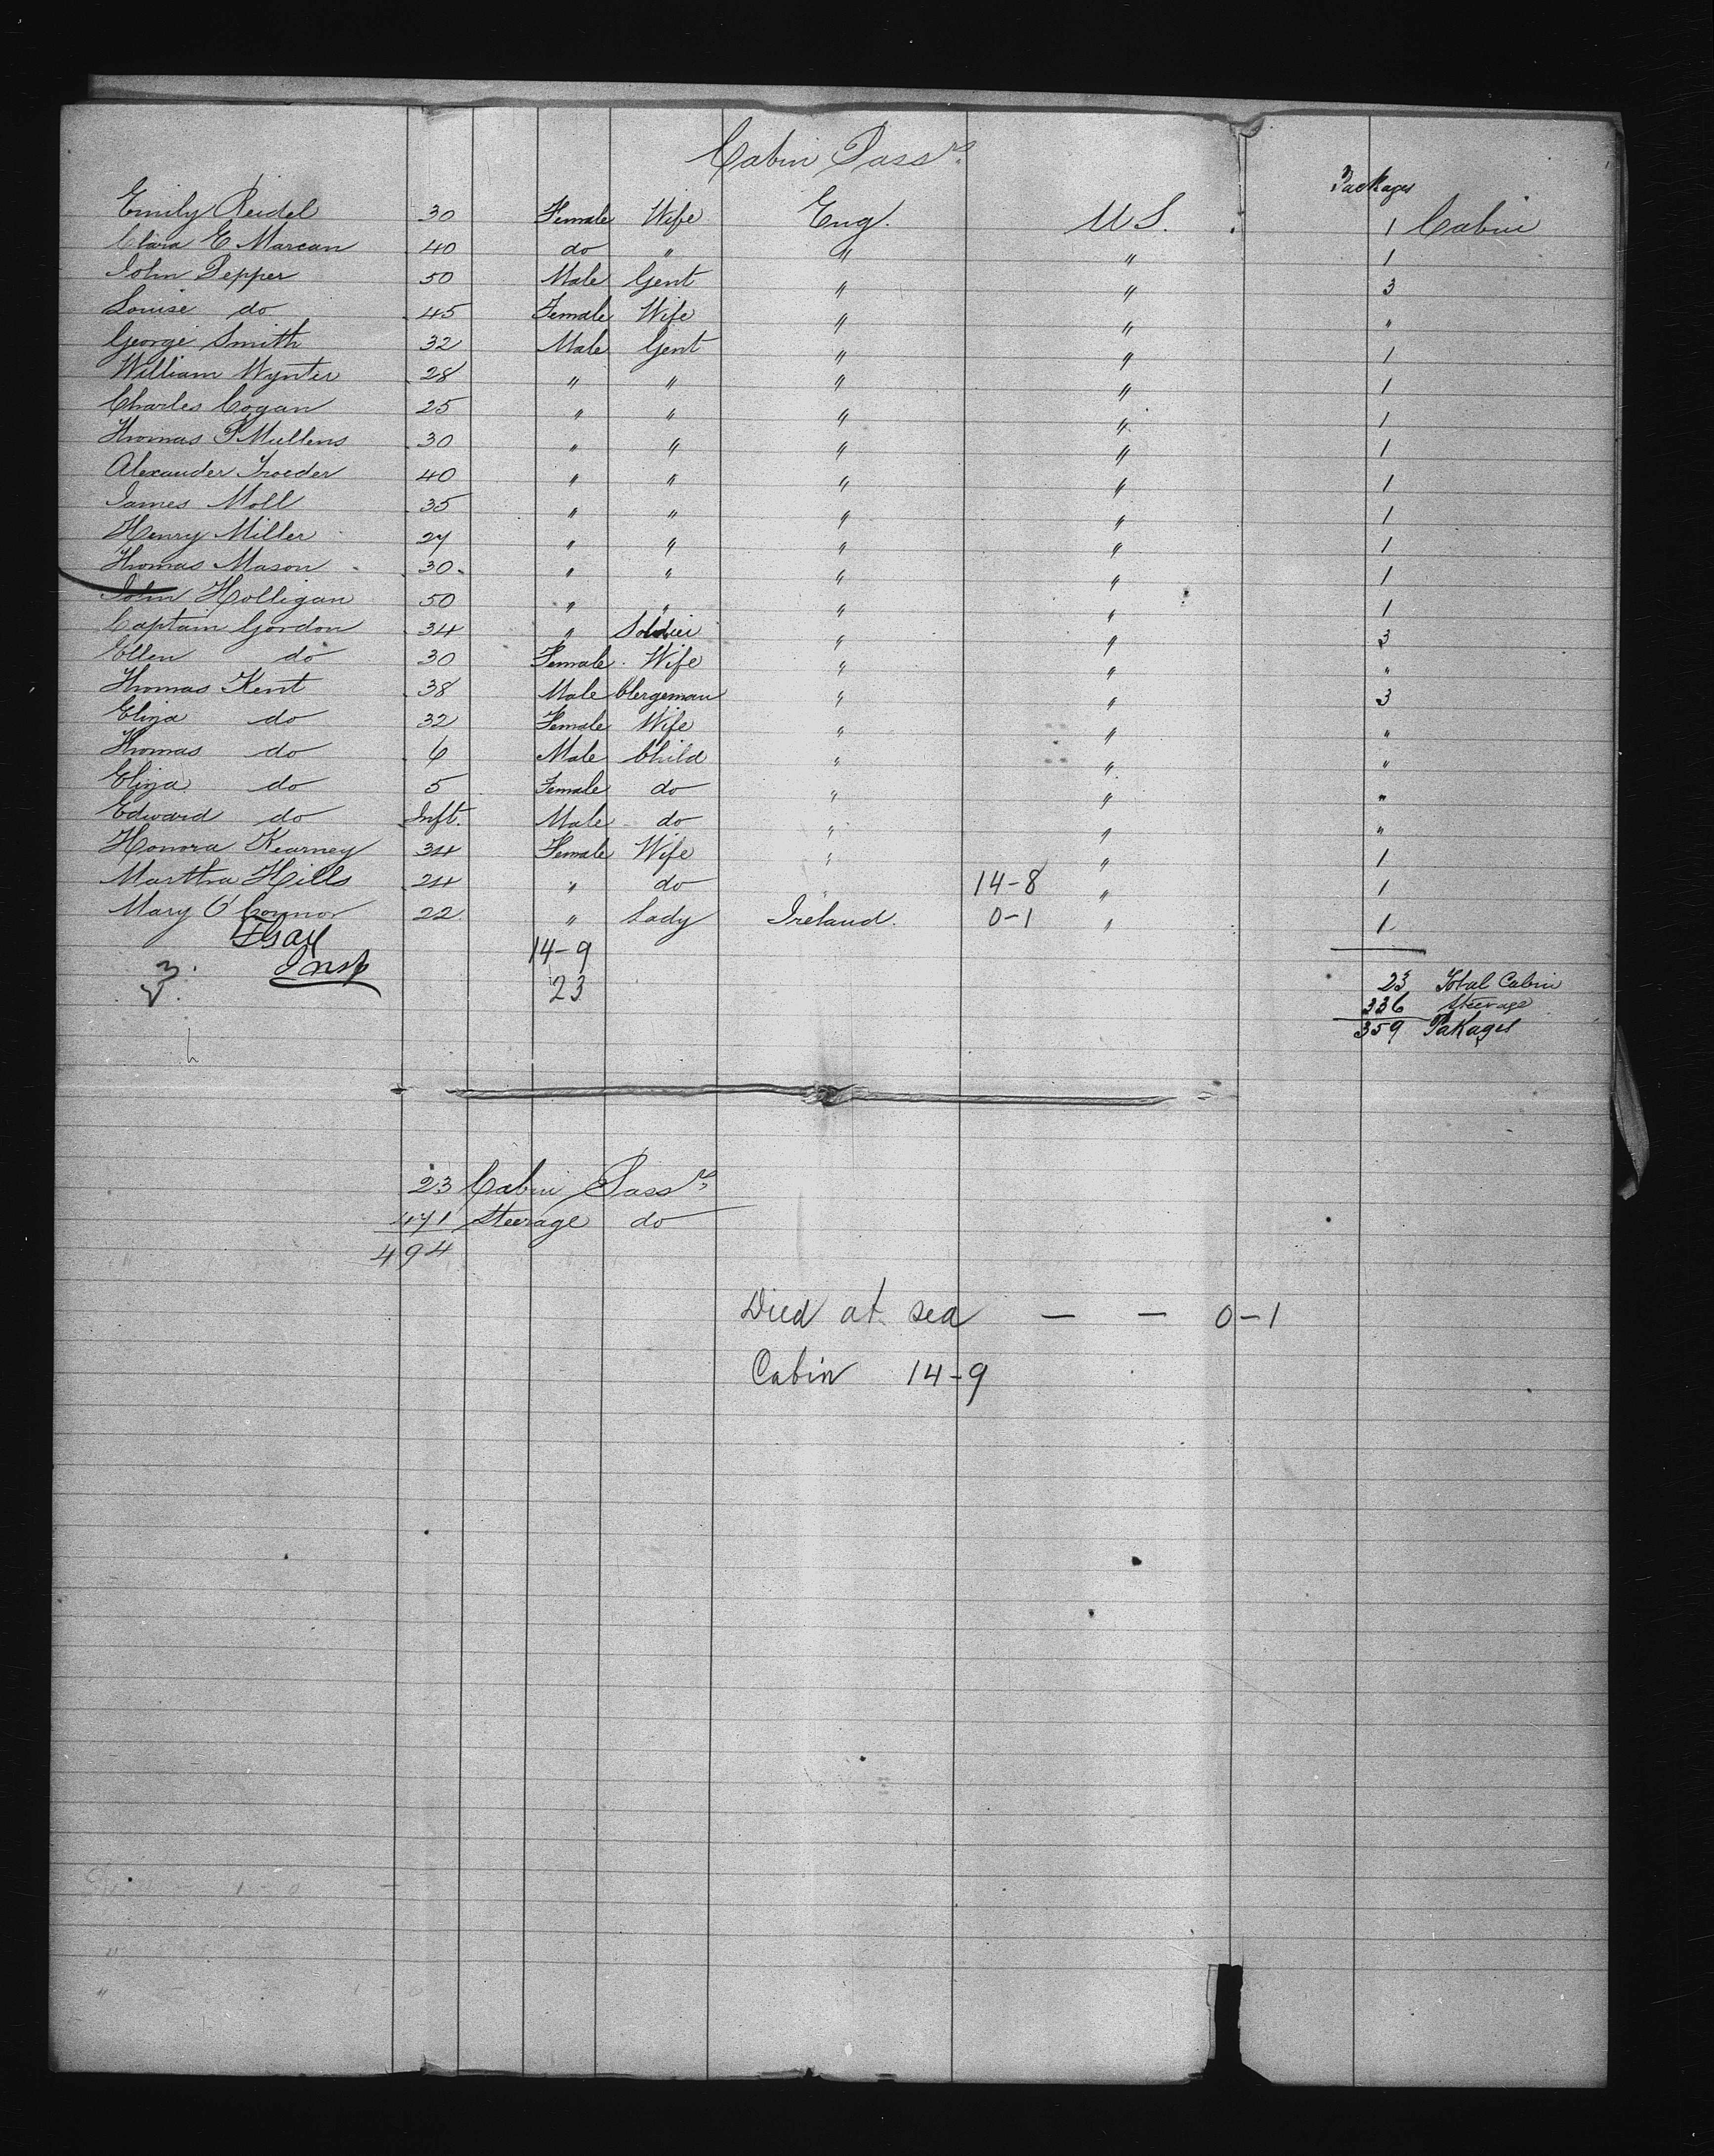 Cabin Passrs
Packages
Emily Reidel 30 Female Wife Eng. U S. 1 Cabin
Clara E Marcan 40 do " " " 1
John Pepper 50 Male Gent " " 3
Louise do 45 Female Wife " " "
George Smith 32 Male Gent " " 1
William Wynter 28 " " " " 1
Charles Cogan 25 " " " " 1
Thomas P Mullens 30 " " " " 1
Alexander Troeder 40 " " " " 1
James Moll 35 " " " " 1
Henry Miller 27 " " " " 1
Thomas Mason 30 " " " " 1
John Holligan 50 " " " " 1
Captain Gordon 34 " Soldier " " 3
Ellen do 30 Female Wife " " "
Thomas Kent 38 Male Clergeman " " 3
Eliza do 32 Female Wife " " "
Thomas do 6 Male Child " " "
Eliza do 5 Female do " " "
Edward do Inft. Male do " " "
Honora Kearney 34 Female Wife " " 1
Martha Hills 24 " do " 14-8 " 1
Mary O'Connor 22 " Lady Ireland. 0-1 " 1
14-9
Insp
23
23 Total Cabin
336 Steerage
359 Pakages
23 Cabin Passrs
471 Steerage do
494
Died at sea — — 0-1
Cabin 14-9